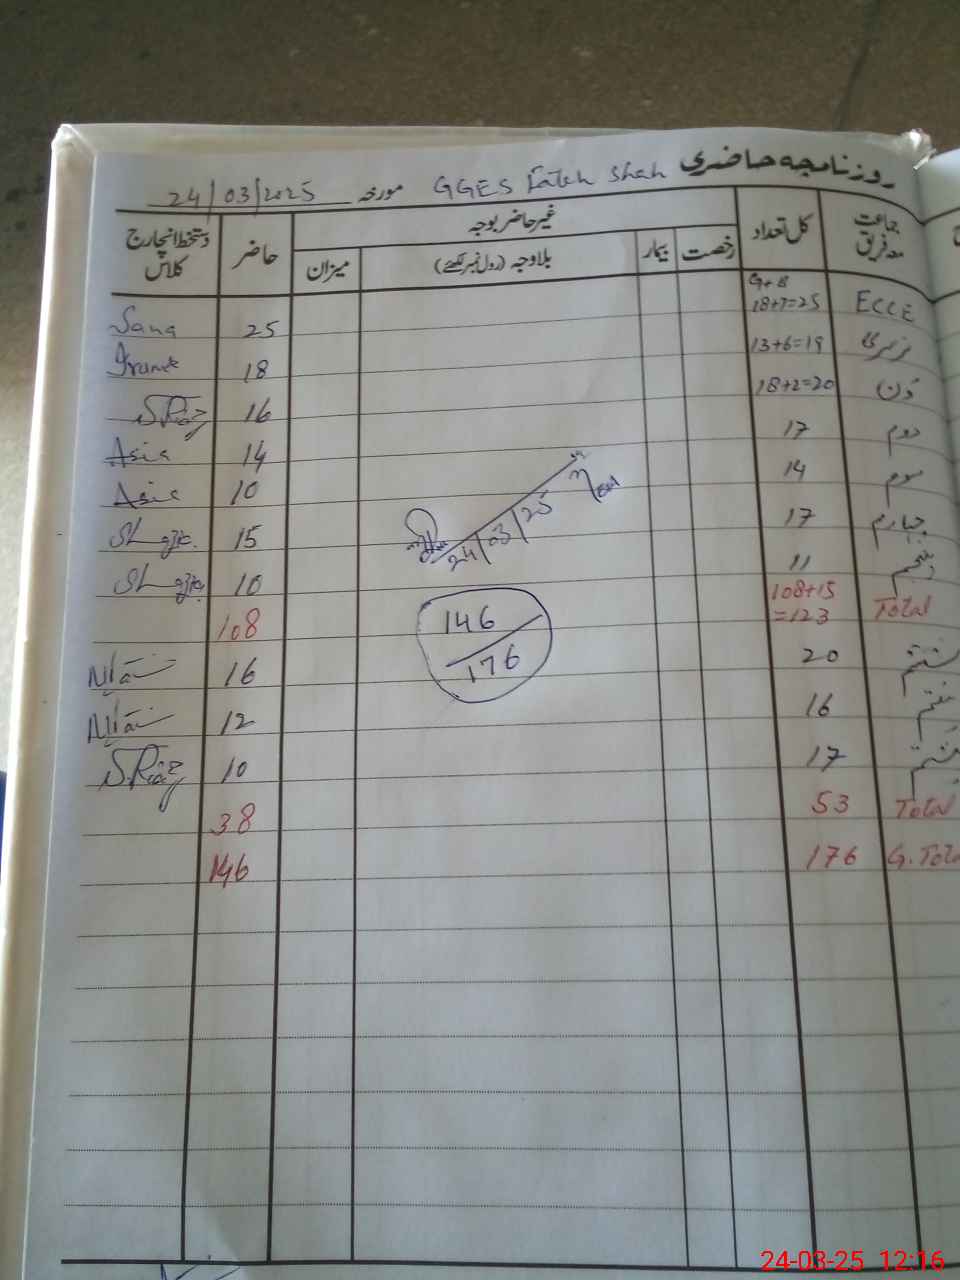 روزنامچہ حاضری GGES Fateh Shah مورخہ 24/03/2025
جماعت معہ فریق کل تعداد غیر حاضر بوجہ حاضر دستخط انچارج کلاس
رخصت بیمار بلاوجہ (رول نمبر لکھئے) میزان
G+B
ECCE 18+7=25 25 Sana
نرسری 13+6=19 18
ون 18+2=20 16 S.Riaz
دوم 17 14 Asia
سوم 14 10 Asia
چہارم 17 15 Shazia
پنجم 11 10 Shazia
Total 108+15=123 108
ششم 20 16
ہفتم 16 12
ہشتم 17 10 S.Riaz
Total 53 38
G.Tota 176 146
24/03/25
146
176
24-03-25 12:16